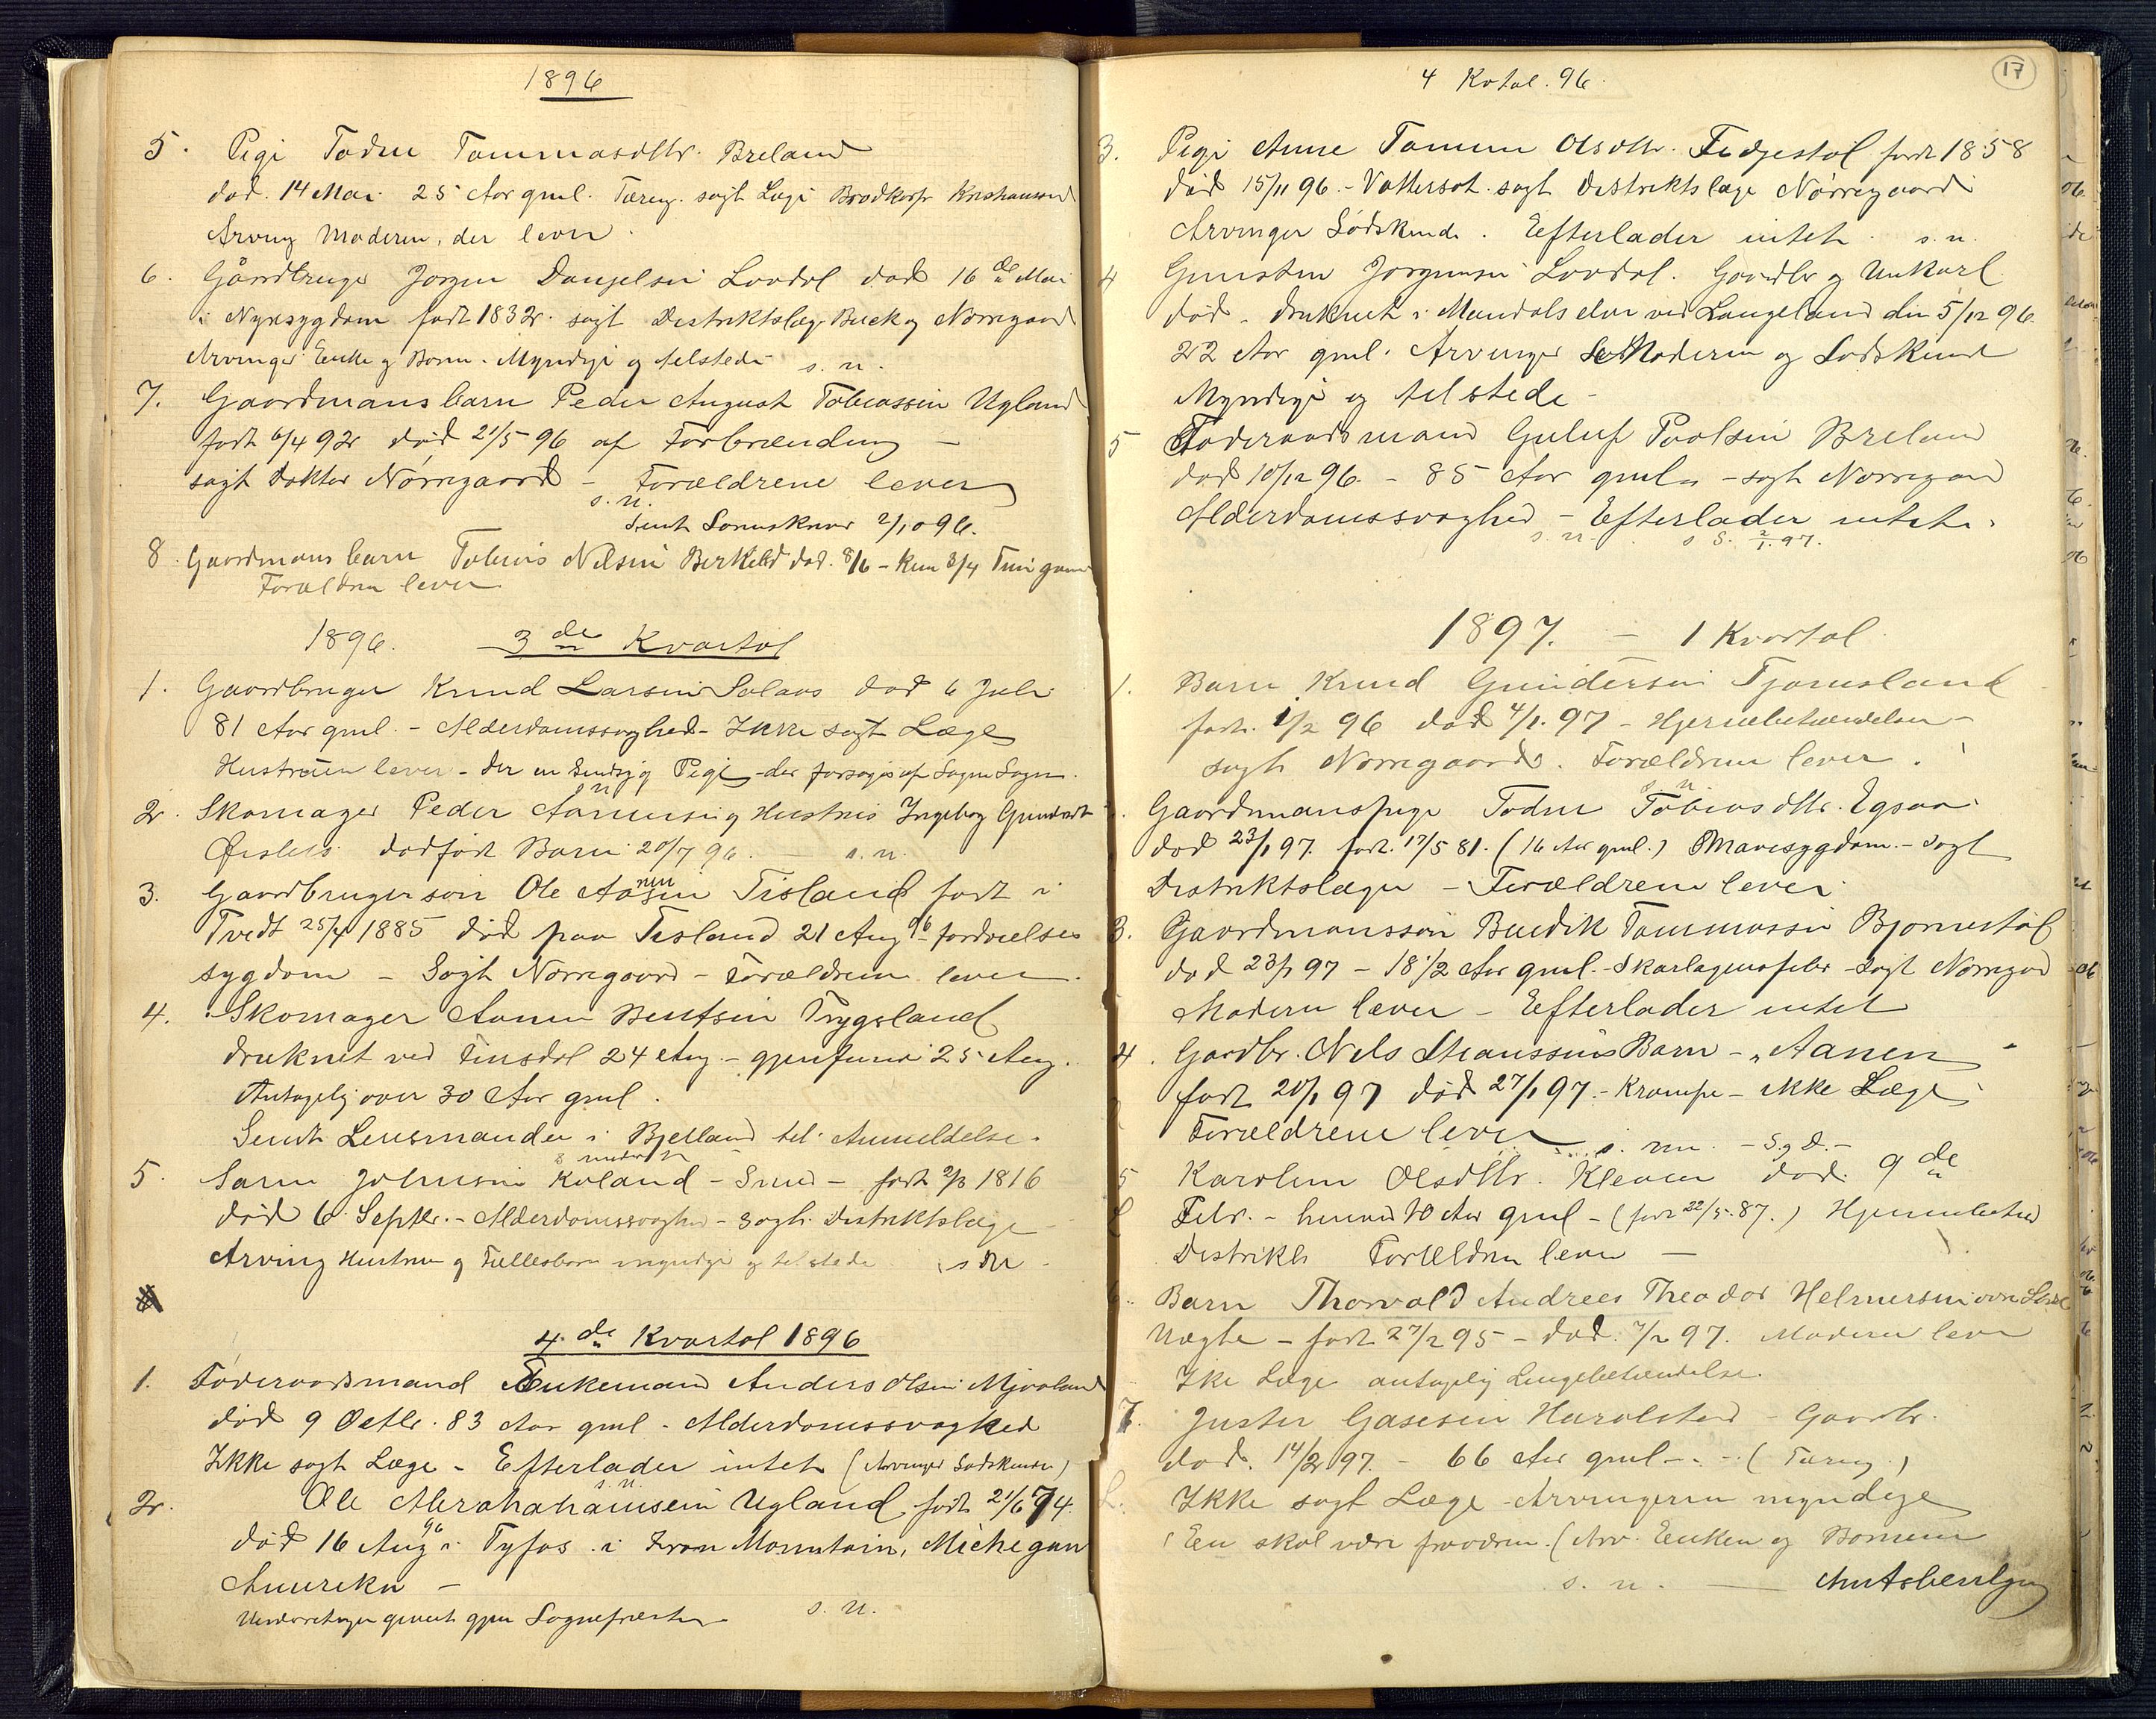 1896
5. Pigi Todne Tommasdtr. Breland
død. 14 Mai 25 Aar gml. Tæring. søgt Læge Brodkorp Kristiansand
Arving Moderen, der lever.
6. Gårdbruger Jørgen Danjelsen Lovdal død 16de Mai
i Nyresygdom født 1832. søgt Distriktslæge Buck og Nørregaard
Arvinger Enke og Børn. Myndige og tilstede s. n.
7. Gaardmansbarn Peder August Tobiassen Ugland
født 6/4 92 død 21/5 96 af Forbrænding –
søgt Doktor Nørregaard – Forældrene lever
s. n.
Sendt Sorenskriver 2/10 96.
8. Gaardmansbarn Tobias Nilsen Birkeland død. 8/6 – kun 3/4 Time gammel
Forældrene lever
1896. 3de Kvartal
1. Gaardbruger Knud Larsen Solaas død 6 Juli
81 Aar gml. – Alderdomssvaghed – Ikke søgt Læge
Hustruen lever – der en Sindsyg Pige – der forsørges af Sogne Sogn.
s. n.
2. Skomager Peder Aanensen og Hustrus Ingeborg Gundersdt
Øislebø dødfødt Barn 20/7 96. – s. n.
3. Gaardbruger søn Ole Aanensen Tisland født i
Tvedt 25/4 1885 død paa Tisland 21 Aug 96 – fordøielses
sygdom – Søgt Nørregaard – Forældrene lever.
4. Skomager Aanen Bentsen Trygsland
druknet ved Finsdal 24 Aug. – gjenfunden 25 Aug.
Antagelig over 30 Aar gml.
Sendt Lensmanden i Bjelland til Anmeldelse.
5. Søren Johnsen Koland – Smed – født 2/3 1816
død 6 Septbr. – Alderdomssvaghed – søgt Distriktslæge –
Arving Hustrue og Fællesbørn myndige og tilstede s n.
4de Kvartal 1896
1. Føderaadsmand Enkemand Anders Olsen Mjaaland
død 9 Octbr. 83 Aar gml – Alderdomssvaghed
Ikke søgt Læge – Efterlader intet (Arvinger Sødskende)
s. n.
2. Ole Abrahahamsen Ugland født 21/6 74.
død 16 Aug 96 i Tyfos i Iron Mountain, Michegan
Amerika –
Underretninger givet gjen Sognepresten s. n.
4 Kvtal. 96.
17
3. Pigi Anne Tomine Olsdtr. Fidjestøl født 1858
død 15/11 96. – Vattersot. søgt Distriktslæge Nørregaard
Arvinger Sødskende. Eefterlader intet. s. n.
4 Gunsten Jørgensen Lovdal. Gaardbr og Unkarl
død – druknet i Mandalselven ved Langeland den 5/12 96.
22 Aar gml. Arvinger Moderen og Sødskende
Myndige og tilstede –
5 Føderaadsmand Guluf Paalsen Breland
død 10/12 96. – 85 Aar gml. – søgt Nørregaard
Alderdomssvaghed – Efterlader intet.
s. n. s S. 2/1. 97.
1897. – 1 Kvartal
1. Barn Knud Gundersen Tjomsland
født. 1/2 96 død 4/1. 97 – Hjernebetændelse –
søgt Nørregaard. Forældrene lever.
s n.
Gaardmanspige Todne Tobiasdtr. Egsaa
død 23/1 97. født. 17/5 81. (16 Aar gml.) Mavesygdom. – søgt
Distriktslægen – Forældrene lever
3. Gaardmanssøn Bendik Tommassen Bjørnestøl
død 23/1 97 – 18 1/2 Aar gml. – Skarlagensfeber – søgt Nørregaard
Moderen lever – Eefterlader intet
4. Gardbr. Nels Staanssens Barn – "Aanen"
født 20/1 97 død 27/1 97. – Krampe – ikke Læge
Forældrene lever s. nn. – S. g. D. –
5 Karoline Olsdtr. Kleven død. 9de
Febr. – henved 10 Aar gml – (født 22/5. 87.) Hjernebetænd
Distrikts Forældrene lever –
6. Barn Thorvald Andreas Theodor Helmersen øvre
Uægte – født 27/12 95 – død. 7/2 97. Moderen lever
Ike Læge antagelig Lungebetændelse.
7. Juster Gasesen Haraldstad – Gaardbr.
død. 14/2 97. – 66 Aar gml – . – (Tæring.)
Ikke søgt Læge – Arvingerne myndige
En skal være fraværen. (Arv. Enken og Børnene
s. n. –